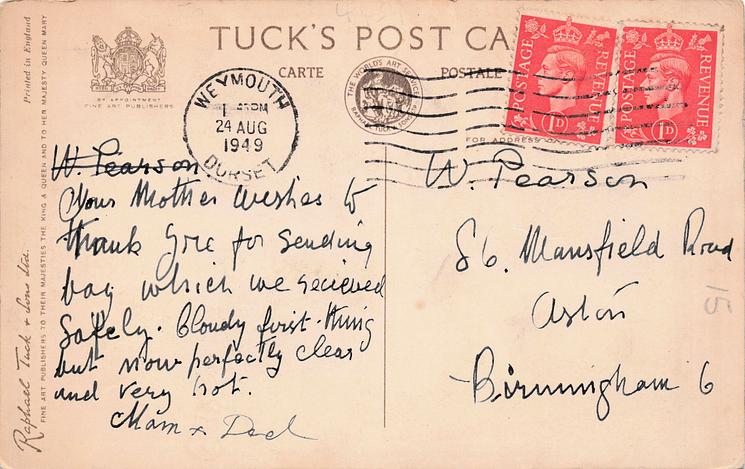 TUCK'S POST CA
CARTE
POSTALE
Printed in England
BY APPOINTMENT
FINE ART PUBLISHERS
THE WORLD'S ART SERVICE
WEYMOUTH
PM
24 AUG
1949
DORSET
POSTAGE
REVENUE
1D
POSTAGE
REVENUE
1D
FOR ADDRESS ON
W. Pearson
Your Mother wishes to
thank you for sending
bag which we recieved
safely. Cloudy first-thing
but now perfectly clear
and very hot.
Mam x Dad
W. Pearson
86. Mansfield Road
Aston
Birmingham 6
15
Raphael Tuck & Sons Ltd.
FINE ART PUBLISHERS TO THEIR MAJESTIES THE KING & QUEEN AND TO HER MAJESTY QUEEN MARY